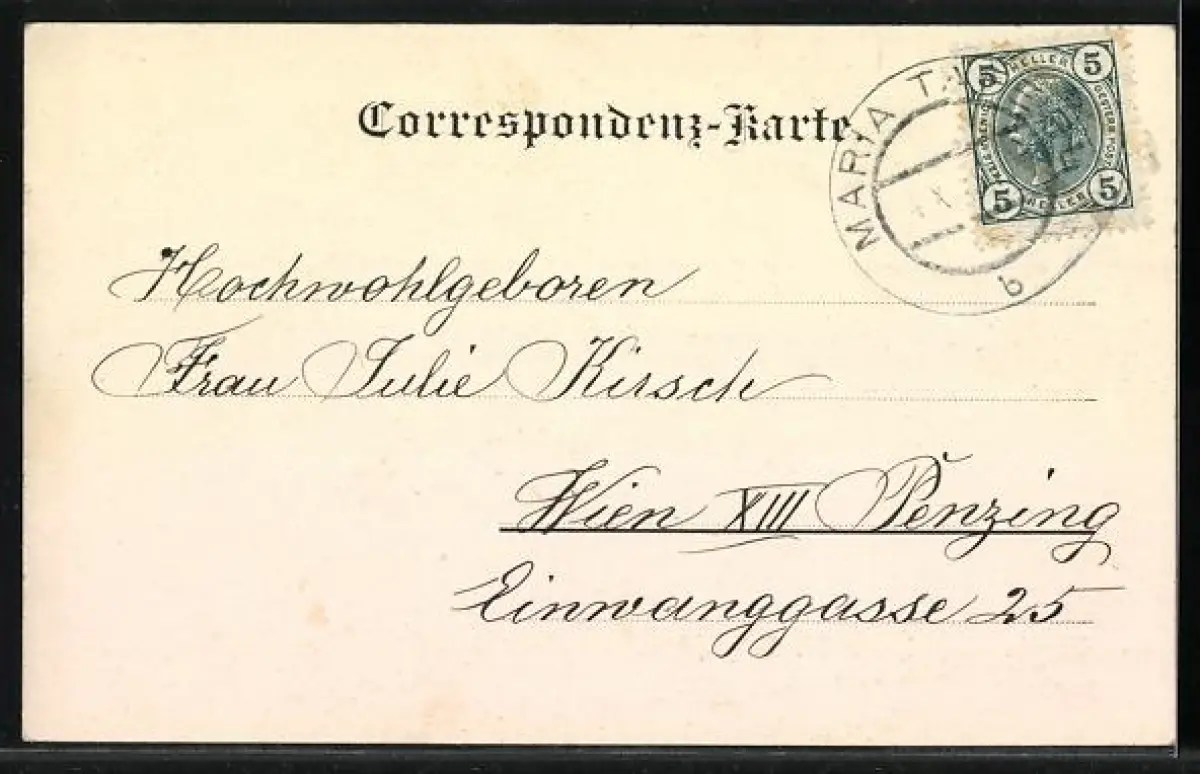 Correspondenz-Karte.
5 HELLER 5
5 HELLER 5
MARIA
b
Hochwohlgeboren
Frau Julie Kirsch
Wien XIII Penzing
Einwanggasse 25